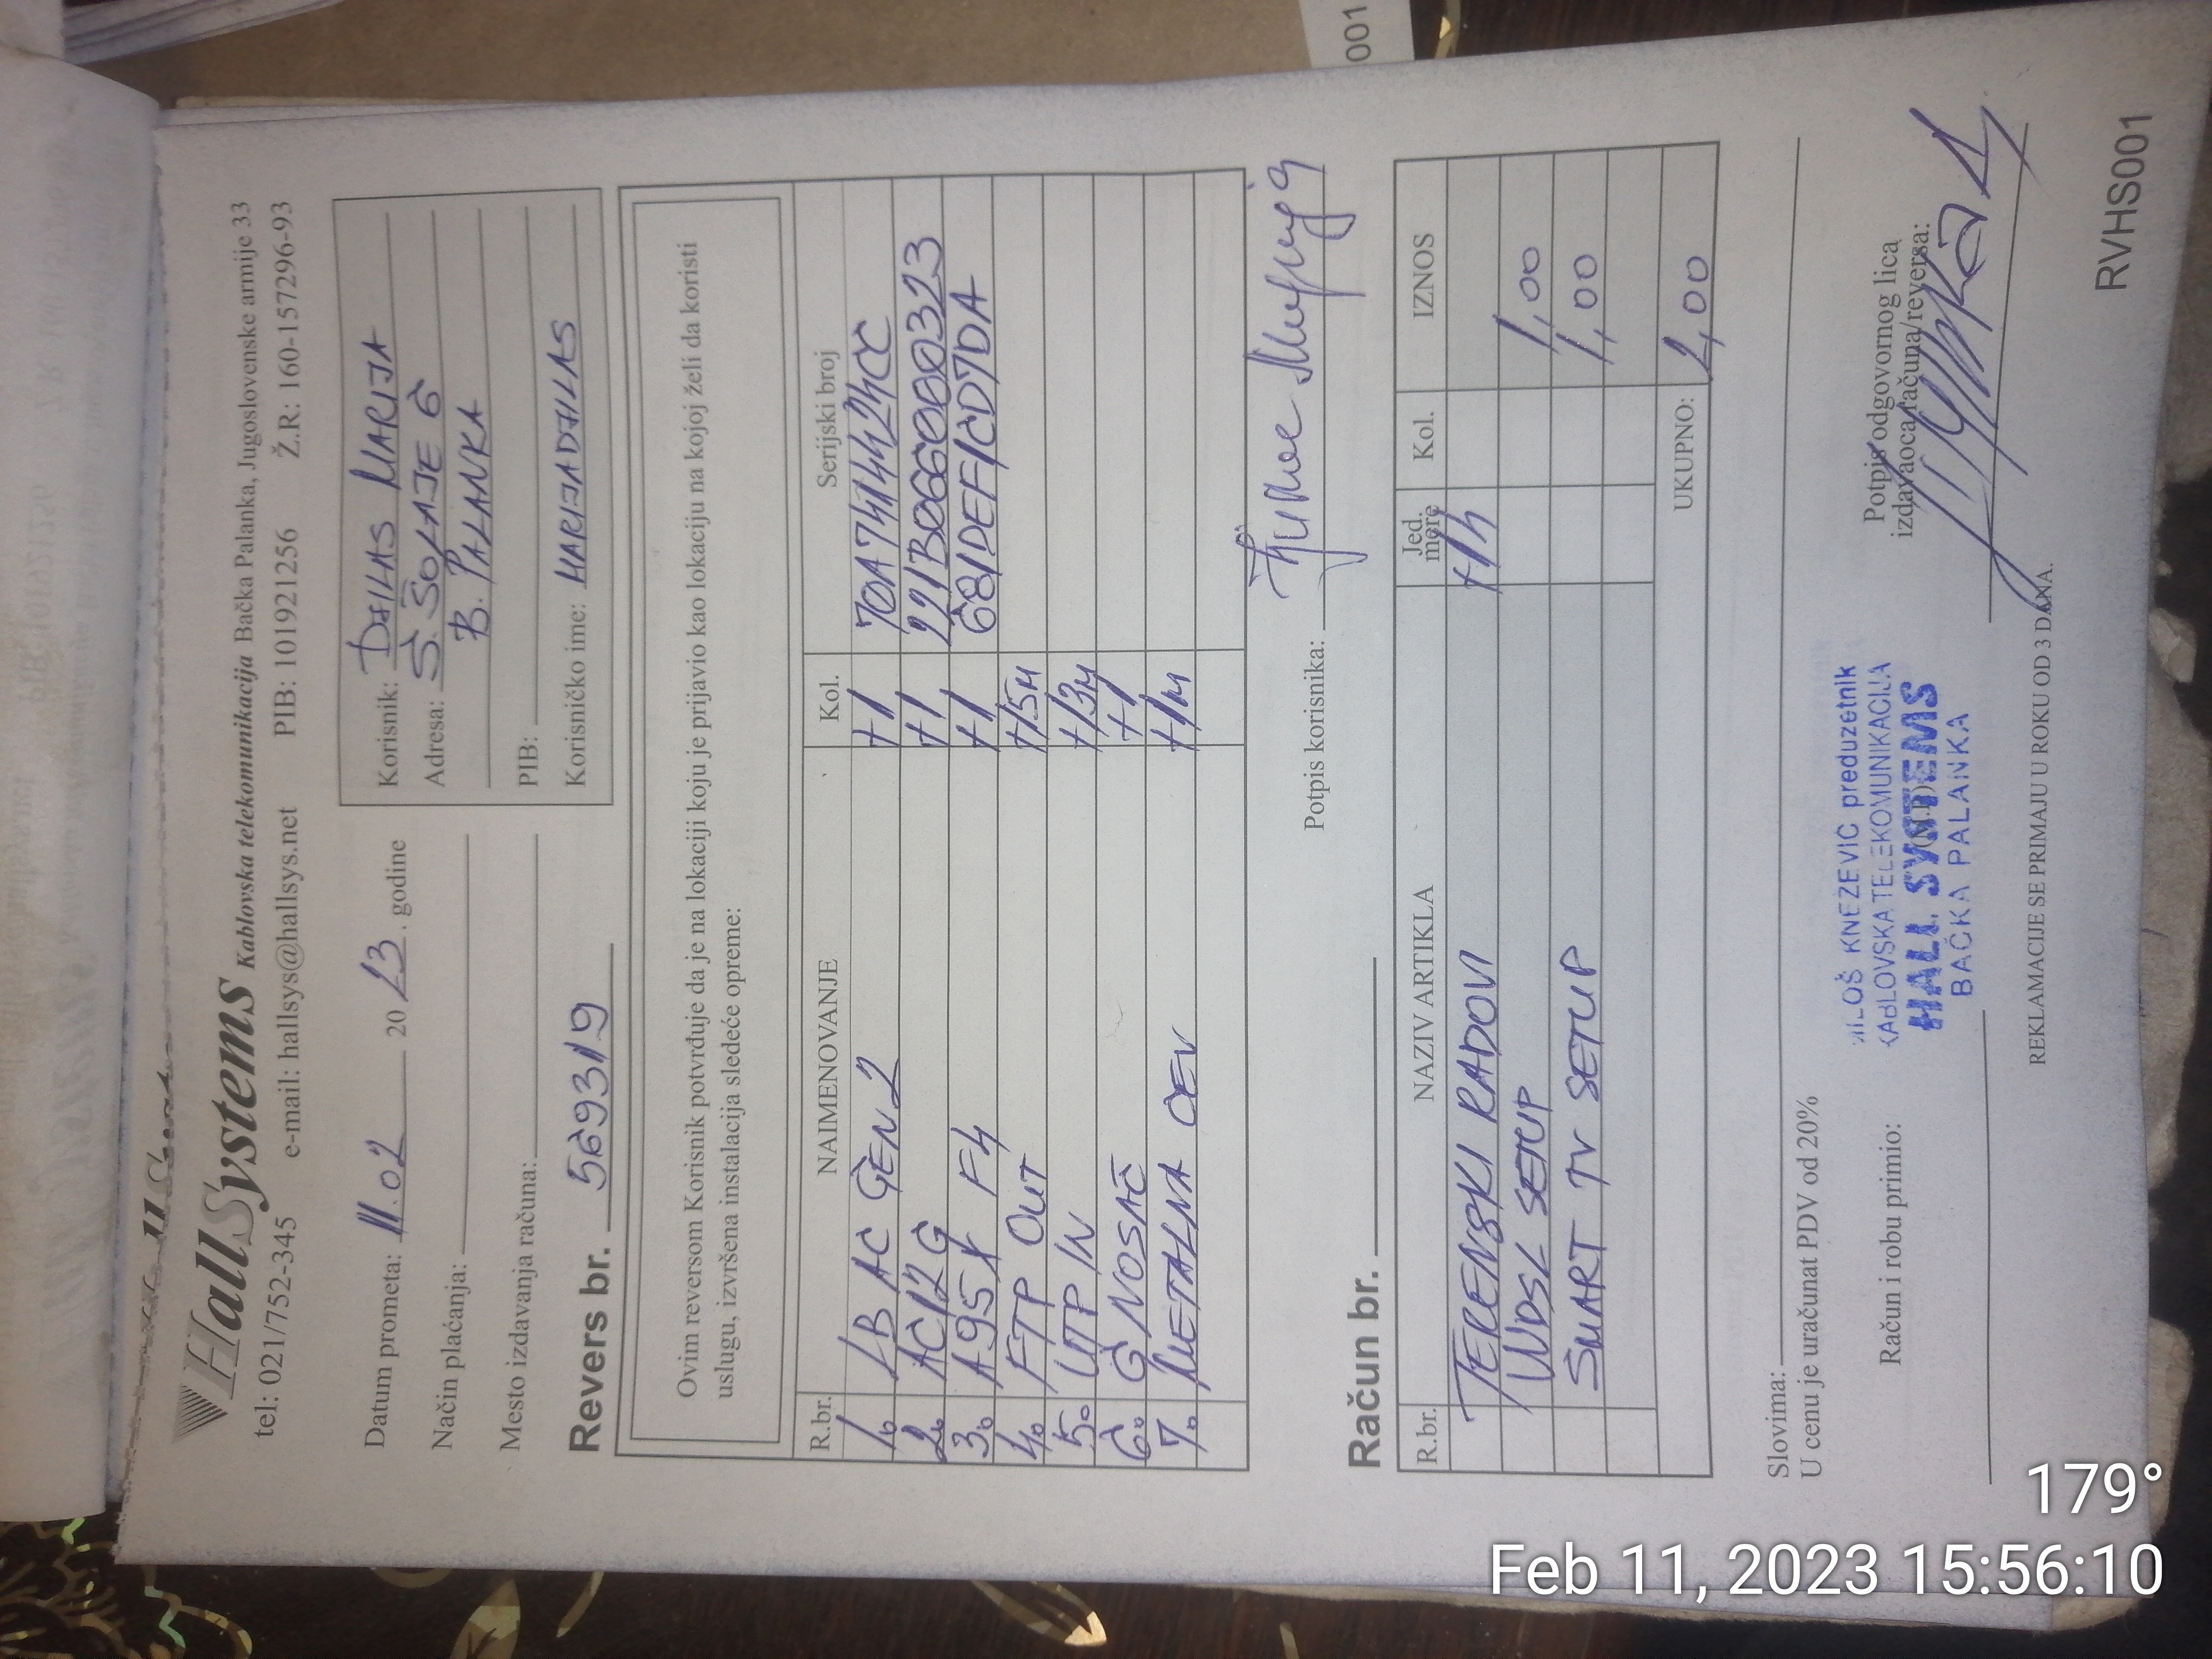 HallSystems Kablovska telekomunikacija Bačka Palanka, Jugoslovenske armije 33
tel: 021/752-345 e-mail: hallsys@hallsys.net PIB: 101921256 Ž.R: 160-157296-93
Datum prometa: 11.02 20 23. godine
Način plaćanja:
Mesto izdavanja računa:
Korisnik: DJILAS MARIJA
Adresa: S. ŠOLAJE 6
B. PALANKA
PIB:
Korisničko ime: MARIJADJILAS
Revers br. 5693119
Ovim reversom Korisnik potvrđuje da je na lokaciji koju je prijavio kao lokaciju na kojoj želi da koristi
uslugu, izvršena instalacija sledeće opreme:
R.br. NAIMENOVANJE Kol. Serijski broj
1. LB AC GEN2 +1 70A7414424CC
2. AC12G +1 221B066000323
3. A95X F4 +1 681DEF1CD7DA
4. FTP OUT +15M
5. UTP IN +3M
6. G NOSAČ +1
7. METALNA CEV +1M
Potpis korisnika:
Račun br.
R.br. NAZIV ARTIKLA Jed. mere Kol. IZNOS
TERENSKI RADOVI +1h
WDSL SETUP 1,00
SMART TV SETUP 1,00
UKUPNO: 2,00
Slovima:
U cenu je uračunat PDV od 20%
Račun i robu primio:
MILOŠ KNEZEVIC preduzetnik
KABLOVSKA TELEKOMUNIKACIJA
HALL SYSTEMS
BAČKA PALANKA
(M.P.)
Potpis odgovornog lica
izdavaoca računa/reversa:
REKLAMACIJE SE PRIMAJU U ROKU OD 3 DANA.
RVHS001
001
179°
Feb 11, 2023 15:56:10